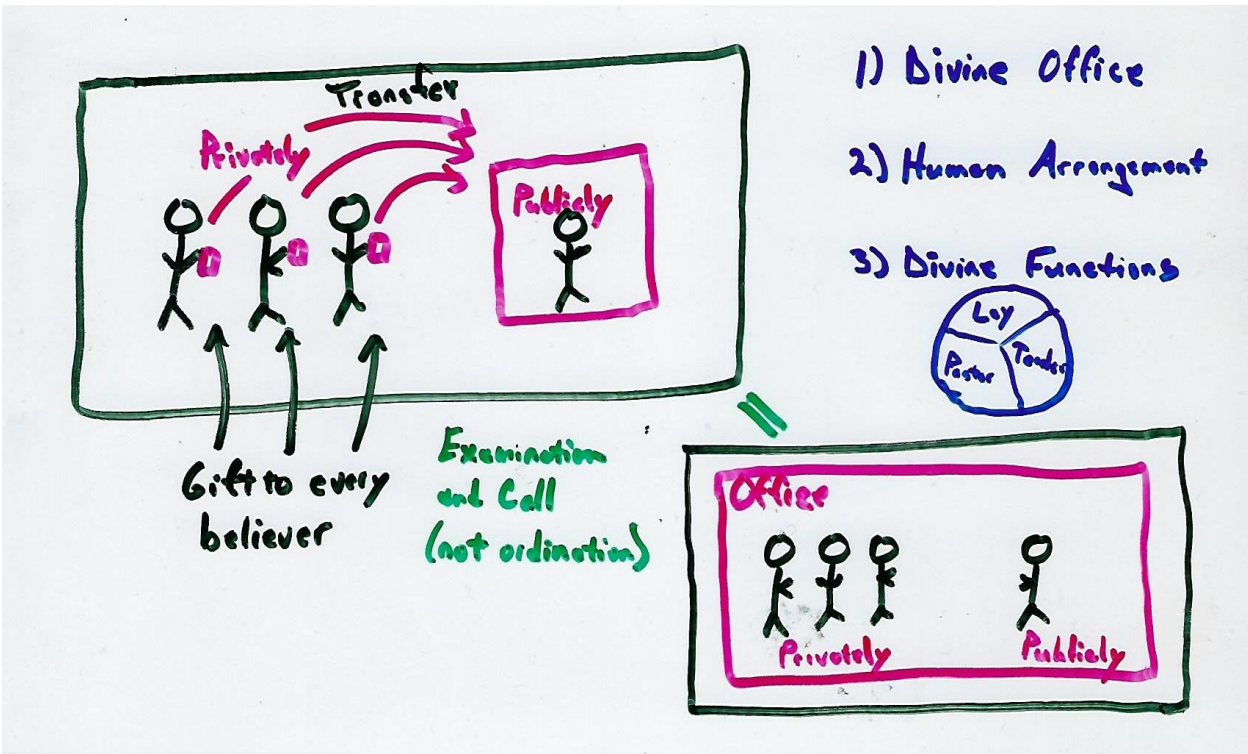 Transfer
Privately
Publicly
Gift to every
believer
Examination
and Call
(not ordination)
1) Divine Office
2) Human Arrangement
3) Divine Functions
Lay
Pastor
Teacher
Office
Privately
Publicly